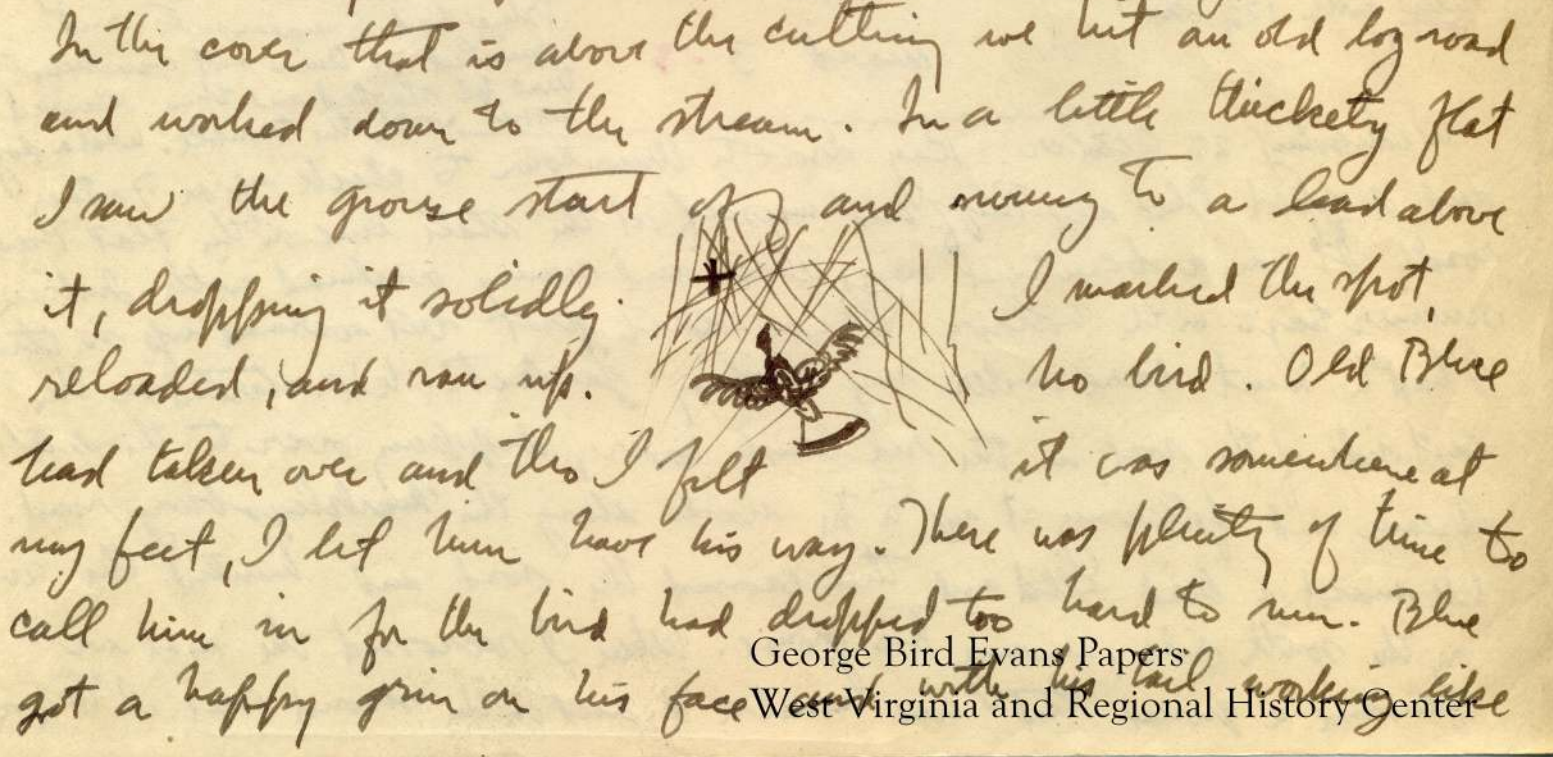 In the cover that is above the cutting we hit an old log road
and worked down to the stream. In a little thickety flat
I saw the grouse start off and swung to a lead above
it, dropping it solidly. I marked the spot,
reloaded, and ran up. No bird. Old Blue
had taken over and tho I felt it was somewhere at
my feet, I let him have his way. There was plenty of time to
call him in for the bird had dropped too hard to run. Blue
got a happy grin on his face and with his tail working like
George Bird Evans Papers
West Virginia and Regional History Center